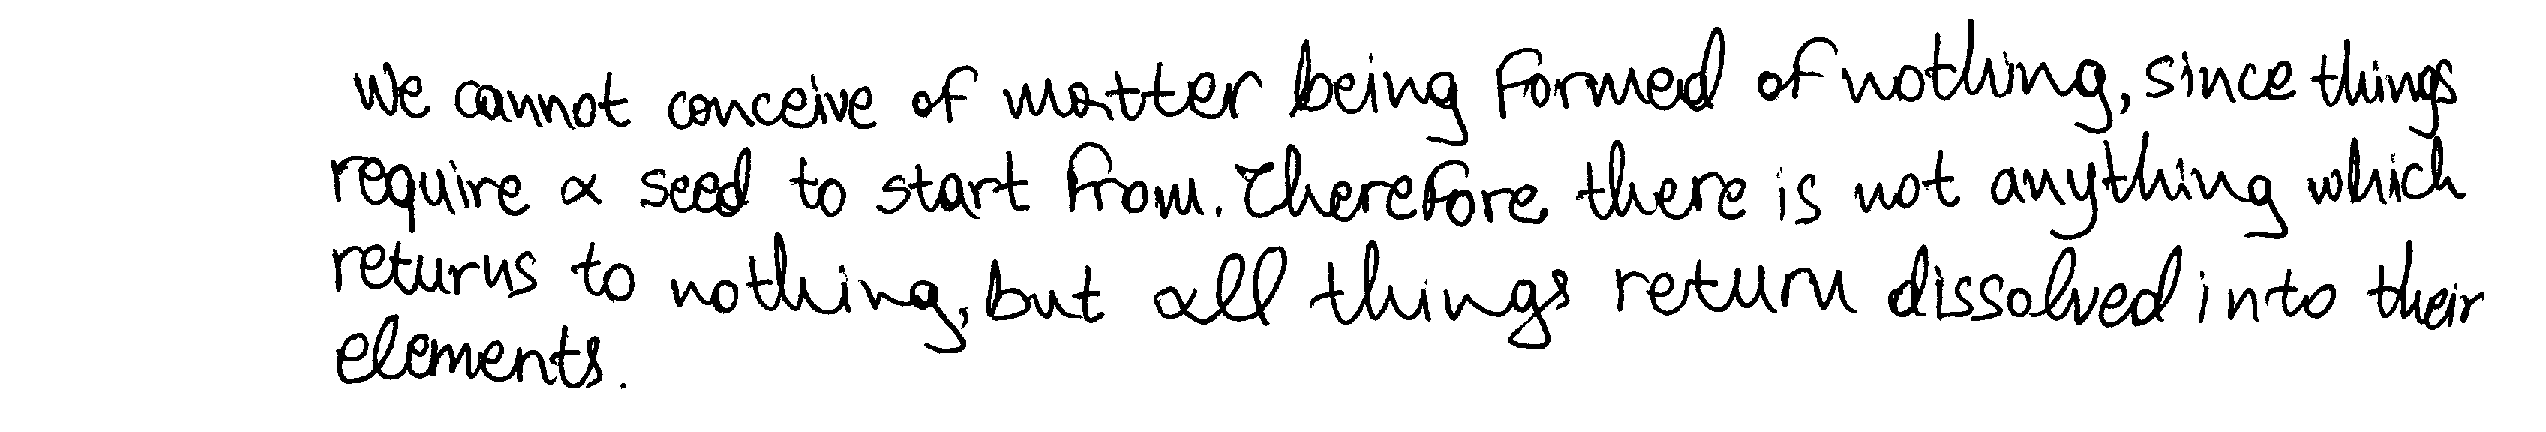 We cannot conceive of matter being formed of nothing, since things
require a seed to start from. Therefore there is not anything which
returns to nothing, but all things return dissolved into their
elements.